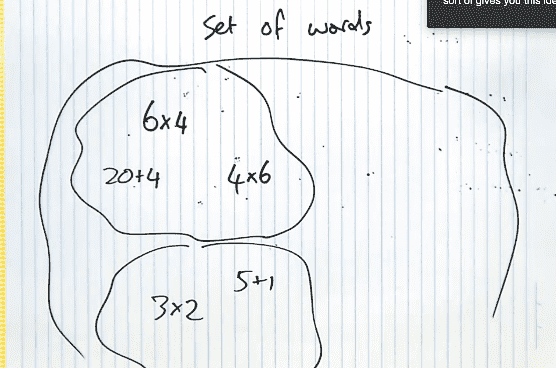 sort of gives you this ide
Set of words
6x4
20+4
4x6
5+1
3x2